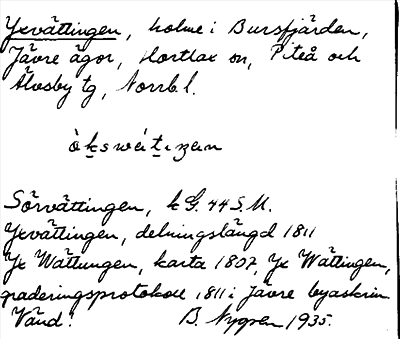 Yxvättingen, holme i Bursfjärden,
Jävre ägor, Hortlax sn, Piteå och
Älvsby tg, Norrb. l.
Sörvättingen, k G. 44 S.M.
Yxvättingen, delningslängd 1811
Yx Wättungen, karta 1807, Yx Wättingen,
graderingsprotokoll 1811 i Jävre byaskrin
Vänd! B. Nygren 1935.